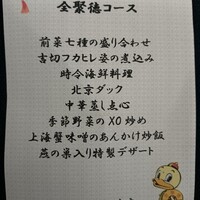 全聚德コース
前菜七種の盛り合わせ
吉切フカヒレ姿の煮込み
時令海鮮料理
北京ダック
中華蒸し点心
季節野菜のXO炒め
上海蟹味噌のあんかけ炒飯
燕の巣入り特製デザート